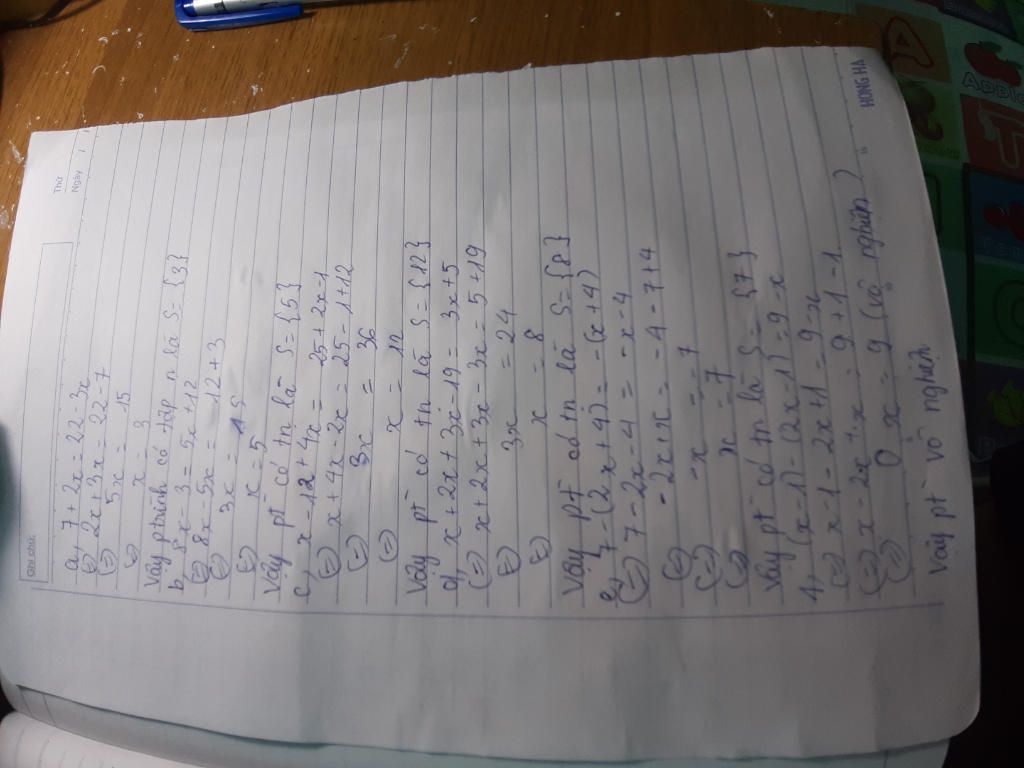 Ghi chú:
Thứ
Ngày
a, 7 + 2x = 22 - 3x
(=) 2x + 3x = 22 - 7
(=) 5x = 15
(=) x = 3
Vậy ptrình có tập n là S = {3}
b, 8x - 3 = 5x + 12
(=) 8x - 5x = 12 + 3
(=) 3x = 15
(=) x = 5
Vậy pt có tn là S = {5}
c, x - 12 + 4x = 25 + 2x - 1
(=) x + 4x - 2x = 25 - 1 + 12
(=) 3x = 36
(=) x = 12
Vậy pt có tn là S = {12}
d, x + 2x + 3x - 19 = 3x + 5
(=) x + 2x + 3x - 3x = 5 + 19
(=) 3x = 24
(=) x = 8
Vậy pt có tn là S = {8}
e, 7 - (2x + 4) = -(x + 4)
(=) 7 - 2x - 4 = -x - 4
(=) -2x + x = -4 - 7 + 4
(=) -x = -7
(=) x = 7
Vậy pt có tn là S = {7}
4, (x - 1) - (2x - 1) = 9 - x
(=) x - 1 - 2x + 1 = 9 - x
(=) x - 2x + x = 9 + 1 - 1
(=) 0x = 9 (vô nghiện)
Vậy pt vô nghiện
HONG HA
A
Apple
T